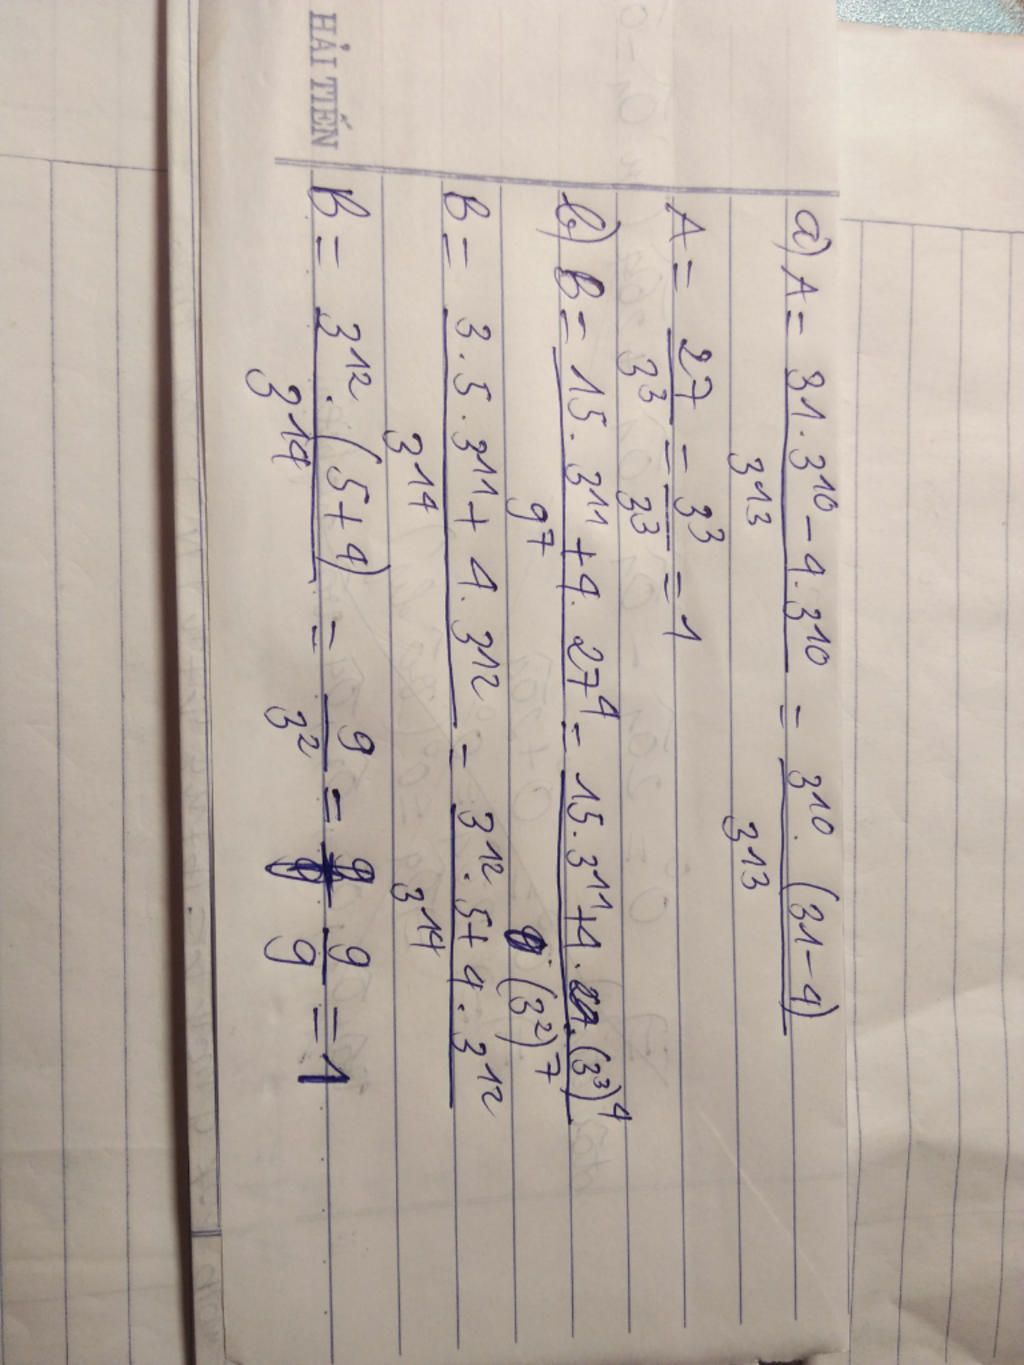 HẢI TIẾN
a) A = 31.3^10 - 4.3^10 / 3^13 = 3^10.(31-4) / 3^13
A = 27 / 3^3 = 3^3 / 3^3 = 1
b) B = 15.3^11 + 4.27^4 / 9^7 = 15.3^11 + 4.(3^3)^4 / (3^2)^7
B = 3.5.3^11 + 4.3^12 / 3^14 = 3^12.5 + 4.3^12 / 3^14
B = 3^12.(5+4) / 3^14 = 9 / 3^2 = 9 / 9 = 1